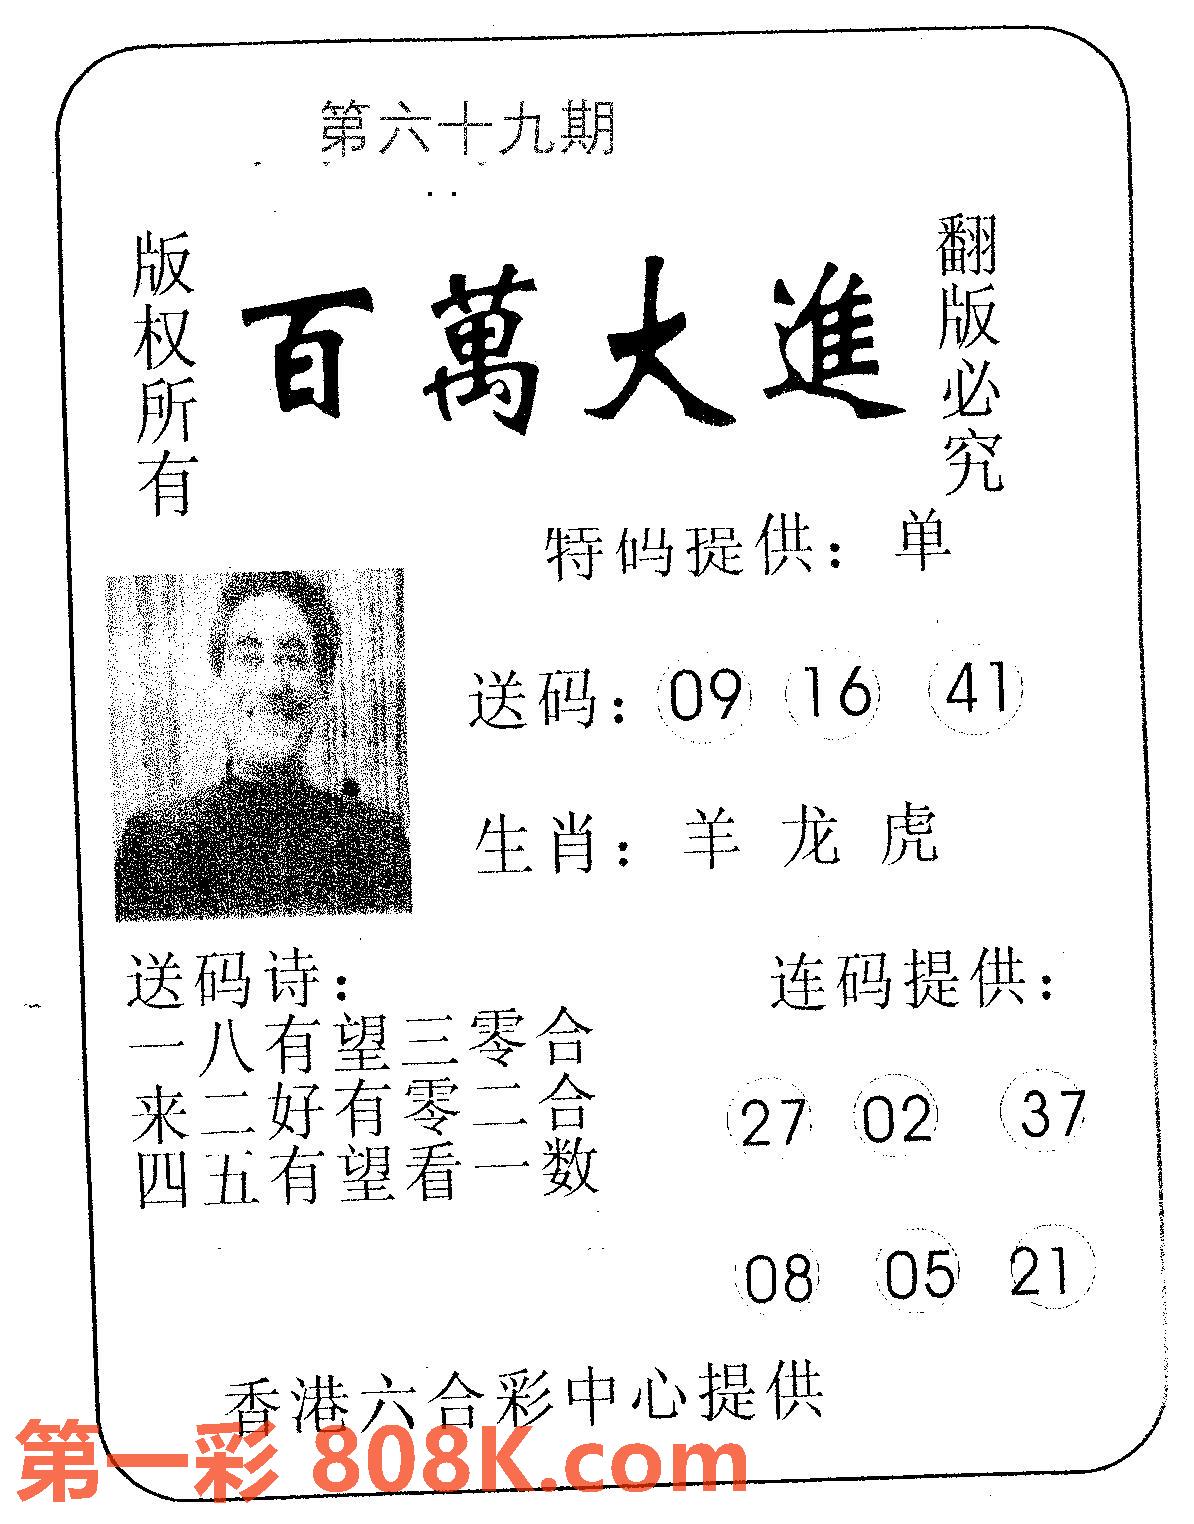 第六十九期
版权所有
百萬大進
翻版必究
特码提供：单
送码：09 16 41
生肖：羊 龙 虎
送码诗：
一八有望三零合
来二好有零二合
四五有望看一数
连码提供：
27 02 37
08 05 21
香港六合彩中心提供
第一彩 808K.com